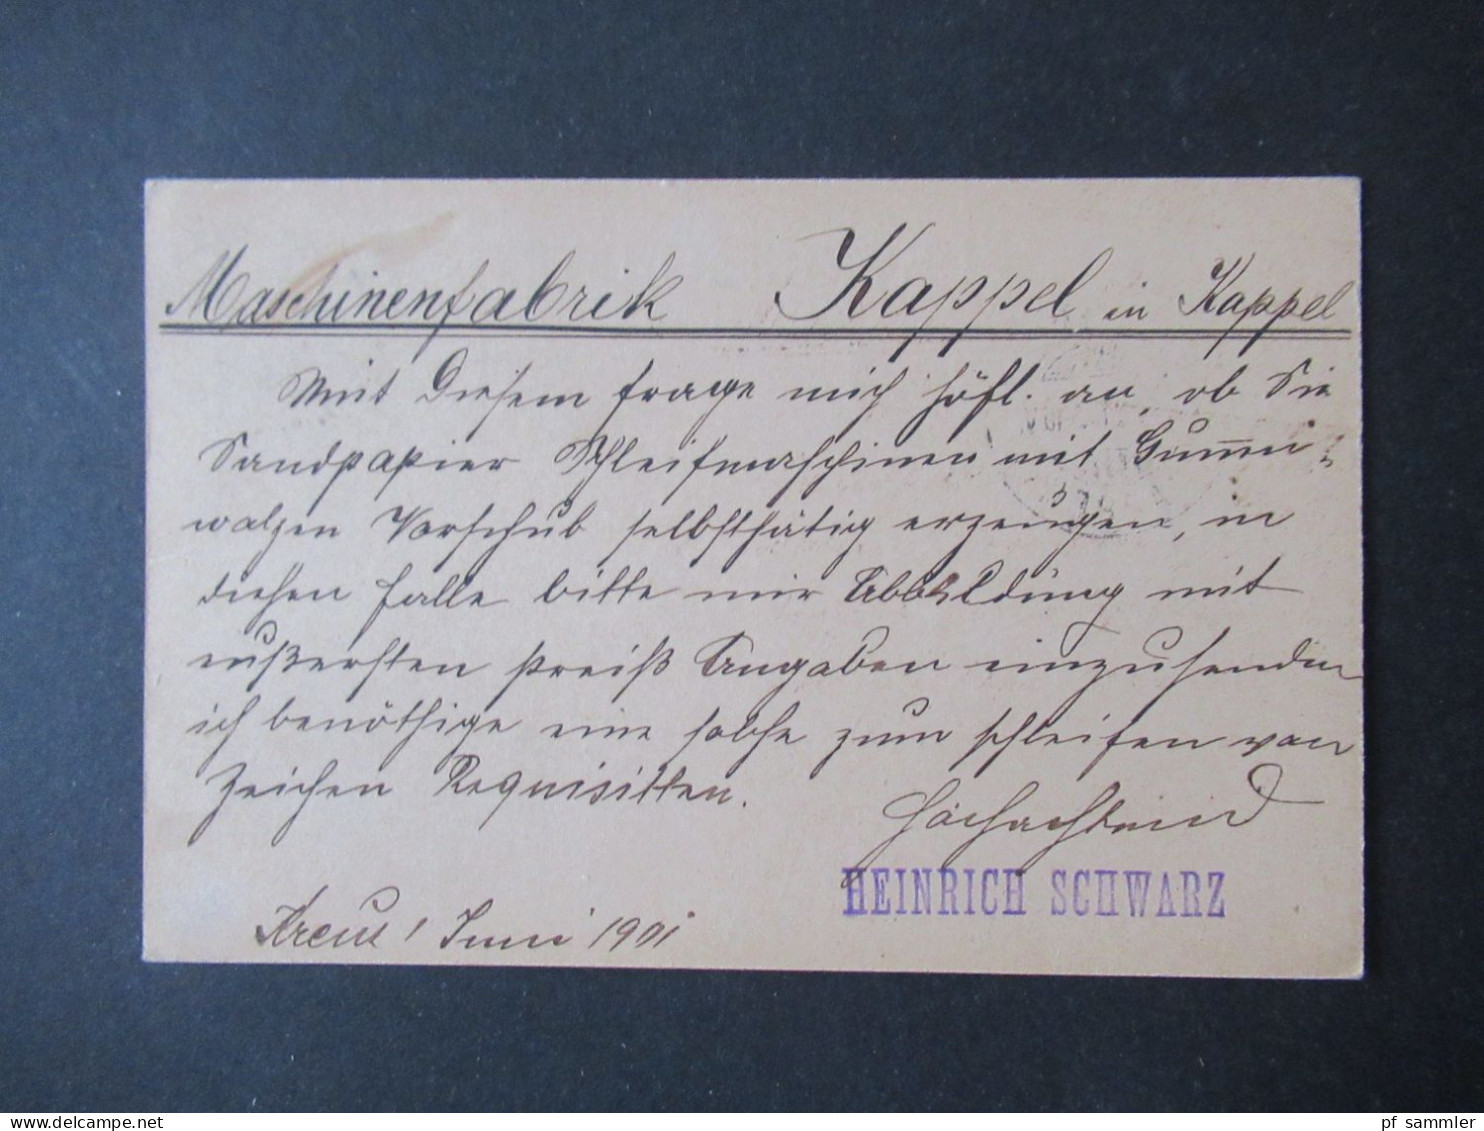 Maschinenfabrik Kappel in Kappel
Mit Diesem frage mich höfl. an, ob Sie
Sandpapier Schleifmaschinen mit Gummi-
walzen Vorschub selbstthätig erzeugen, in
diesen Falle bitte mir Abbildung mit
eußersten Preiß Angaben einzusenden
ich benöthige eine solche zum schleifen von
Zeichen Requisitten.
Hochachtend
HEINRICH SCHWARZ
1 Juni 1901
pf sammler
delcampe.net